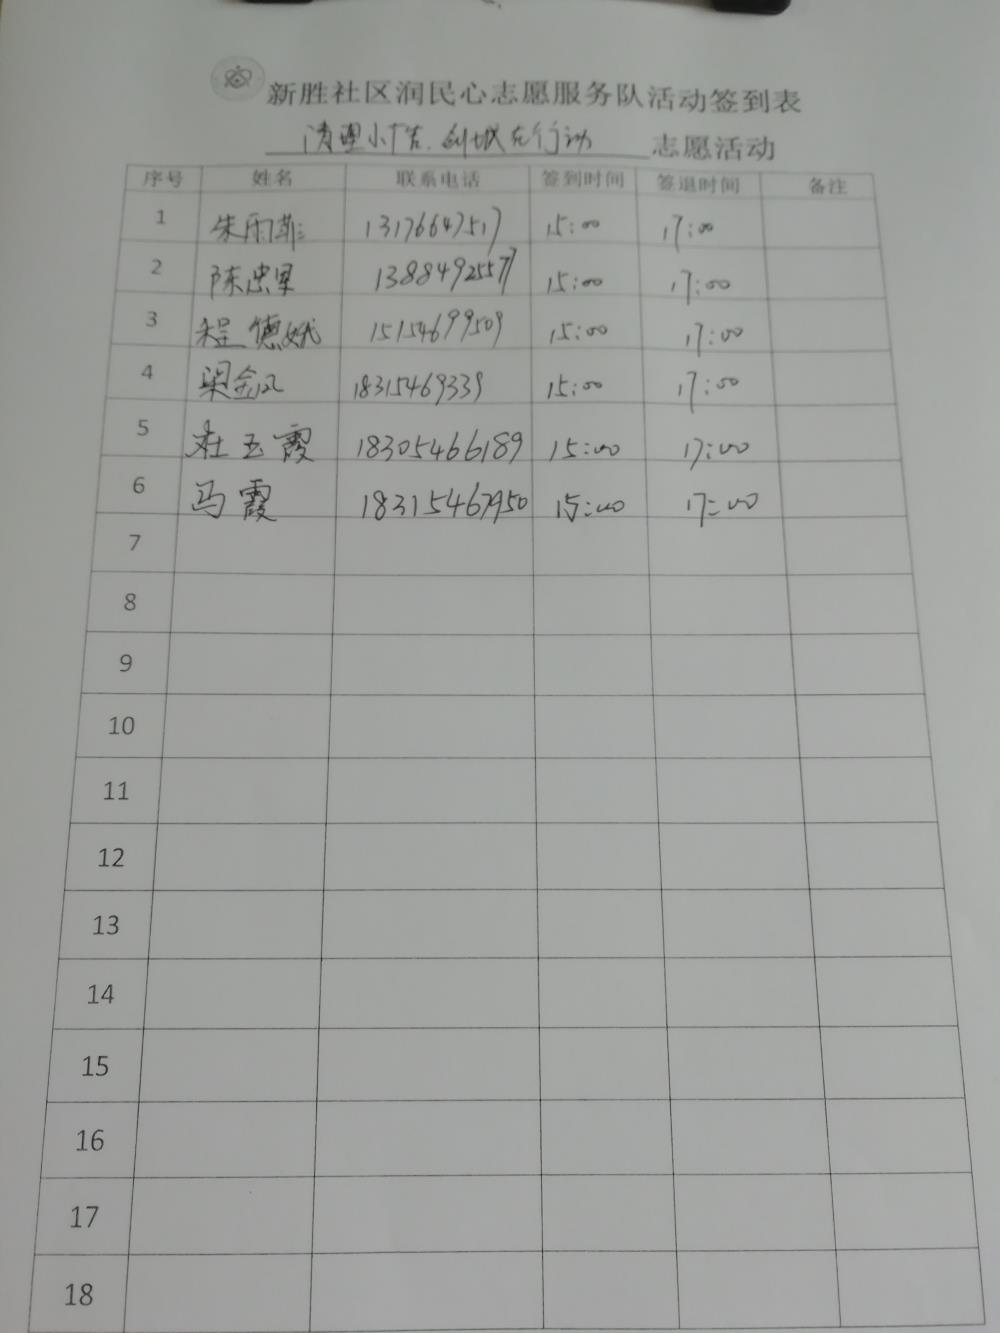 新胜社区润民心志愿服务队活动签到表
清理小广告、创城在行动 志愿活动
序号 姓名 联系电话 签到时间 签退时间 备注
1 朱雨菲 13176647517 15:00 17:00
2 陈忠军 13884925577 15:00 17:00
3 程德娥 15154699509 15:00 17:00
4 梁金凤 18315469339 15:00 17:00
5 杜玉霞 18305466189 15:00 17:00
6 马霞 18315467950 15:00 17:00
7
8
9
10
11
12
13
14
15
16
17
18